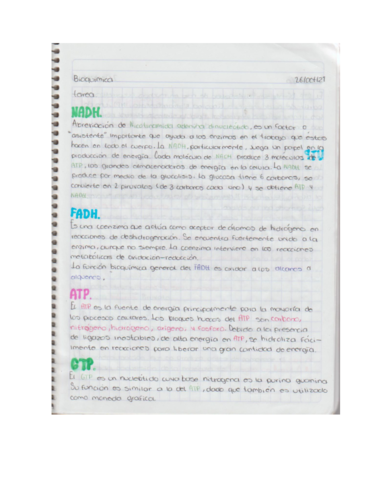 Bioquímica 26/04/21
tarea
NADH.
Abreviación de dinucleótido de adenina, es un factor o
"asistente" importante que ayuda a las enzimas en el trabajo que estas
hacen en todo el cuerpo. La NADH, particularmente, juega un papel en la
producción de energía. Cada molécula de NADH produce 3 moléculas de
ATP, los grandes almacenadores de energía en la célula. La NADH se
produce por medio de la glucolisis. la glucosa tiene 6 carbonos, se
convierte en 2 piruvatos (de 3 carbonos cada uno) y se obtiene ATP y
NADH.
FADH.
Es una coenzima que actúa como aceptor de átomos de hidrógeno en
reacciones de deshidrogenación. Se encuentra fuertemente unido a la
enzima, aunque no siempre. La coenzima interviene en las reacciones
metabólicas de oxidación-reducción.
La función bioquímica general del FADH es oxidar a los alcanos a
alquenos.
ATP.
El ATP es la fuente de energía principalmente para la mayoría de
los procesos celulares. Los bloques huecos del ATP son carbono,
nitrógeno, hidrógeno, oxígeno, y fósforo. Debido a la presencia
de ligazos inestables, de alta energía en ATP, se hidroliza fácil-
mente en reacciones para liberar una gran cantidad de energía.
GTP.
El GTP es un nucleótido cuya base nitrogena es la purina guanina.
Su función es similar a la del ATP, dado que también es utilizado
como moneda